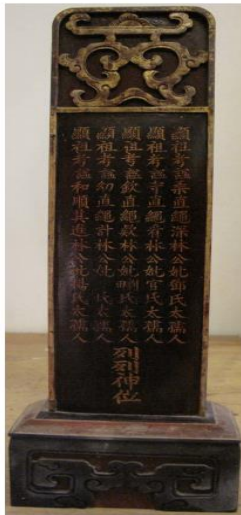 顯祖考諡柔直繩深林公妣鄧氏太孺人
顯祖考諡守直繩看林公妣官氏太孺人
顯祖考諡欽直繩款林公妣劉氏太孺人
顯祖考諡幼直繩計林公妣 氏太孺人
顯祖考諡和順具進林公妣楊氏太孺人
列列神位